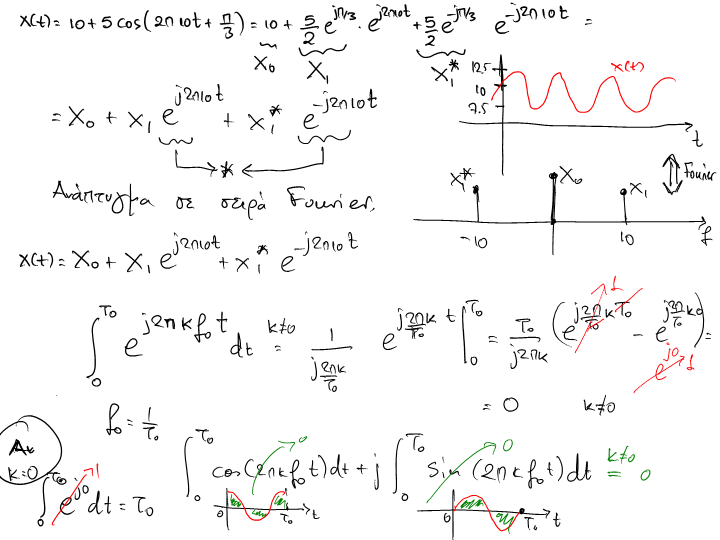 x(t) = 10 + 5 cos(2π10t + π/3) = 10 + 5/2 e^{jπ/3} · e^{j2π10t} + 5/2 e^{-jπ/3} e^{-j2π10t} =
X₀ X₁ X₁*
12.5
10
7.5
x(t)
t
= X₀ + X₁ e^{j2π10t} + X₁* e^{-j2π10t}
*
Fourier
Ανάπτυγμα σε σειρά Fourier.
X₁* X₀ X₁
-10 10 f
x(t) = X₀ + X₁ e^{j2π10t} + X₁* e^{-j2π10t}
∫₀^{T₀} e^{j2πkf₀t} dt =^{k≠0} 1/(j2πk/T₀) e^{j(2πk/T₀)t} |₀^{T₀} = T₀/(j2πk) (e^{j(2π/T₀)kT₀} - e^{j(2π/T₀)k0}) =
1
e^{j0} 1
= 0 k≠0
f₀ = 1/T₀
Αν k=0
∫₀^{T₀} e^{j0} dt = T₀
1
∫₀^{T₀} cos(2πkf₀t)dt + j ∫₀^{T₀} sin(2πkf₀t)dt =^{k≠0} 0
0 0
0 T₀ t
0 T₀ t